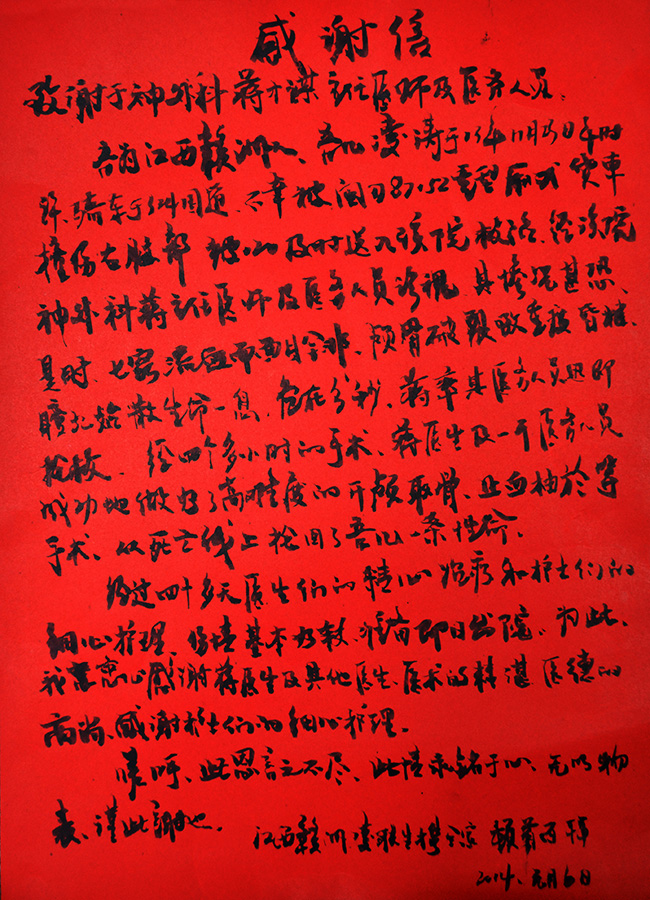 感谢信
致谢于神外科蒋才谋主医师及医务人员
吾为江西赣洲人、吾儿凌涛于13年11月30日
骑车于国道、不幸被闽D 重型 货车
撞伤右脑部 及时送入该院抢治、经该院
神外科蒋主医师及医务人员诊视、其惨况甚恐、
是时、七窍流血而面目全非、颅骨破裂致重度昏迷、
瞳孔始散生命一息、危在分秒、蒋率其医务人员迅即
抢救、经四个多小时的手术、蒋医生及一干医务人员
成功地做好了高难度的开颅取骨、止血抽瘀等
手术、从死亡线上抢回了吾儿一条性命、
经过四十多天医生们的精心治疗和护士们的
细心护理、伤情基本好转、即日出院、为此、
我衷心感谢蒋医生及其他医生、医术的精湛 医德的
高尚、感谢护士们的细心护理。
嗟呼、此恩言之不尽、此情永铭于心、无以物
表、谨此谢也、
江西赣州凌联生携家 顿首百拜
2014、元月6日